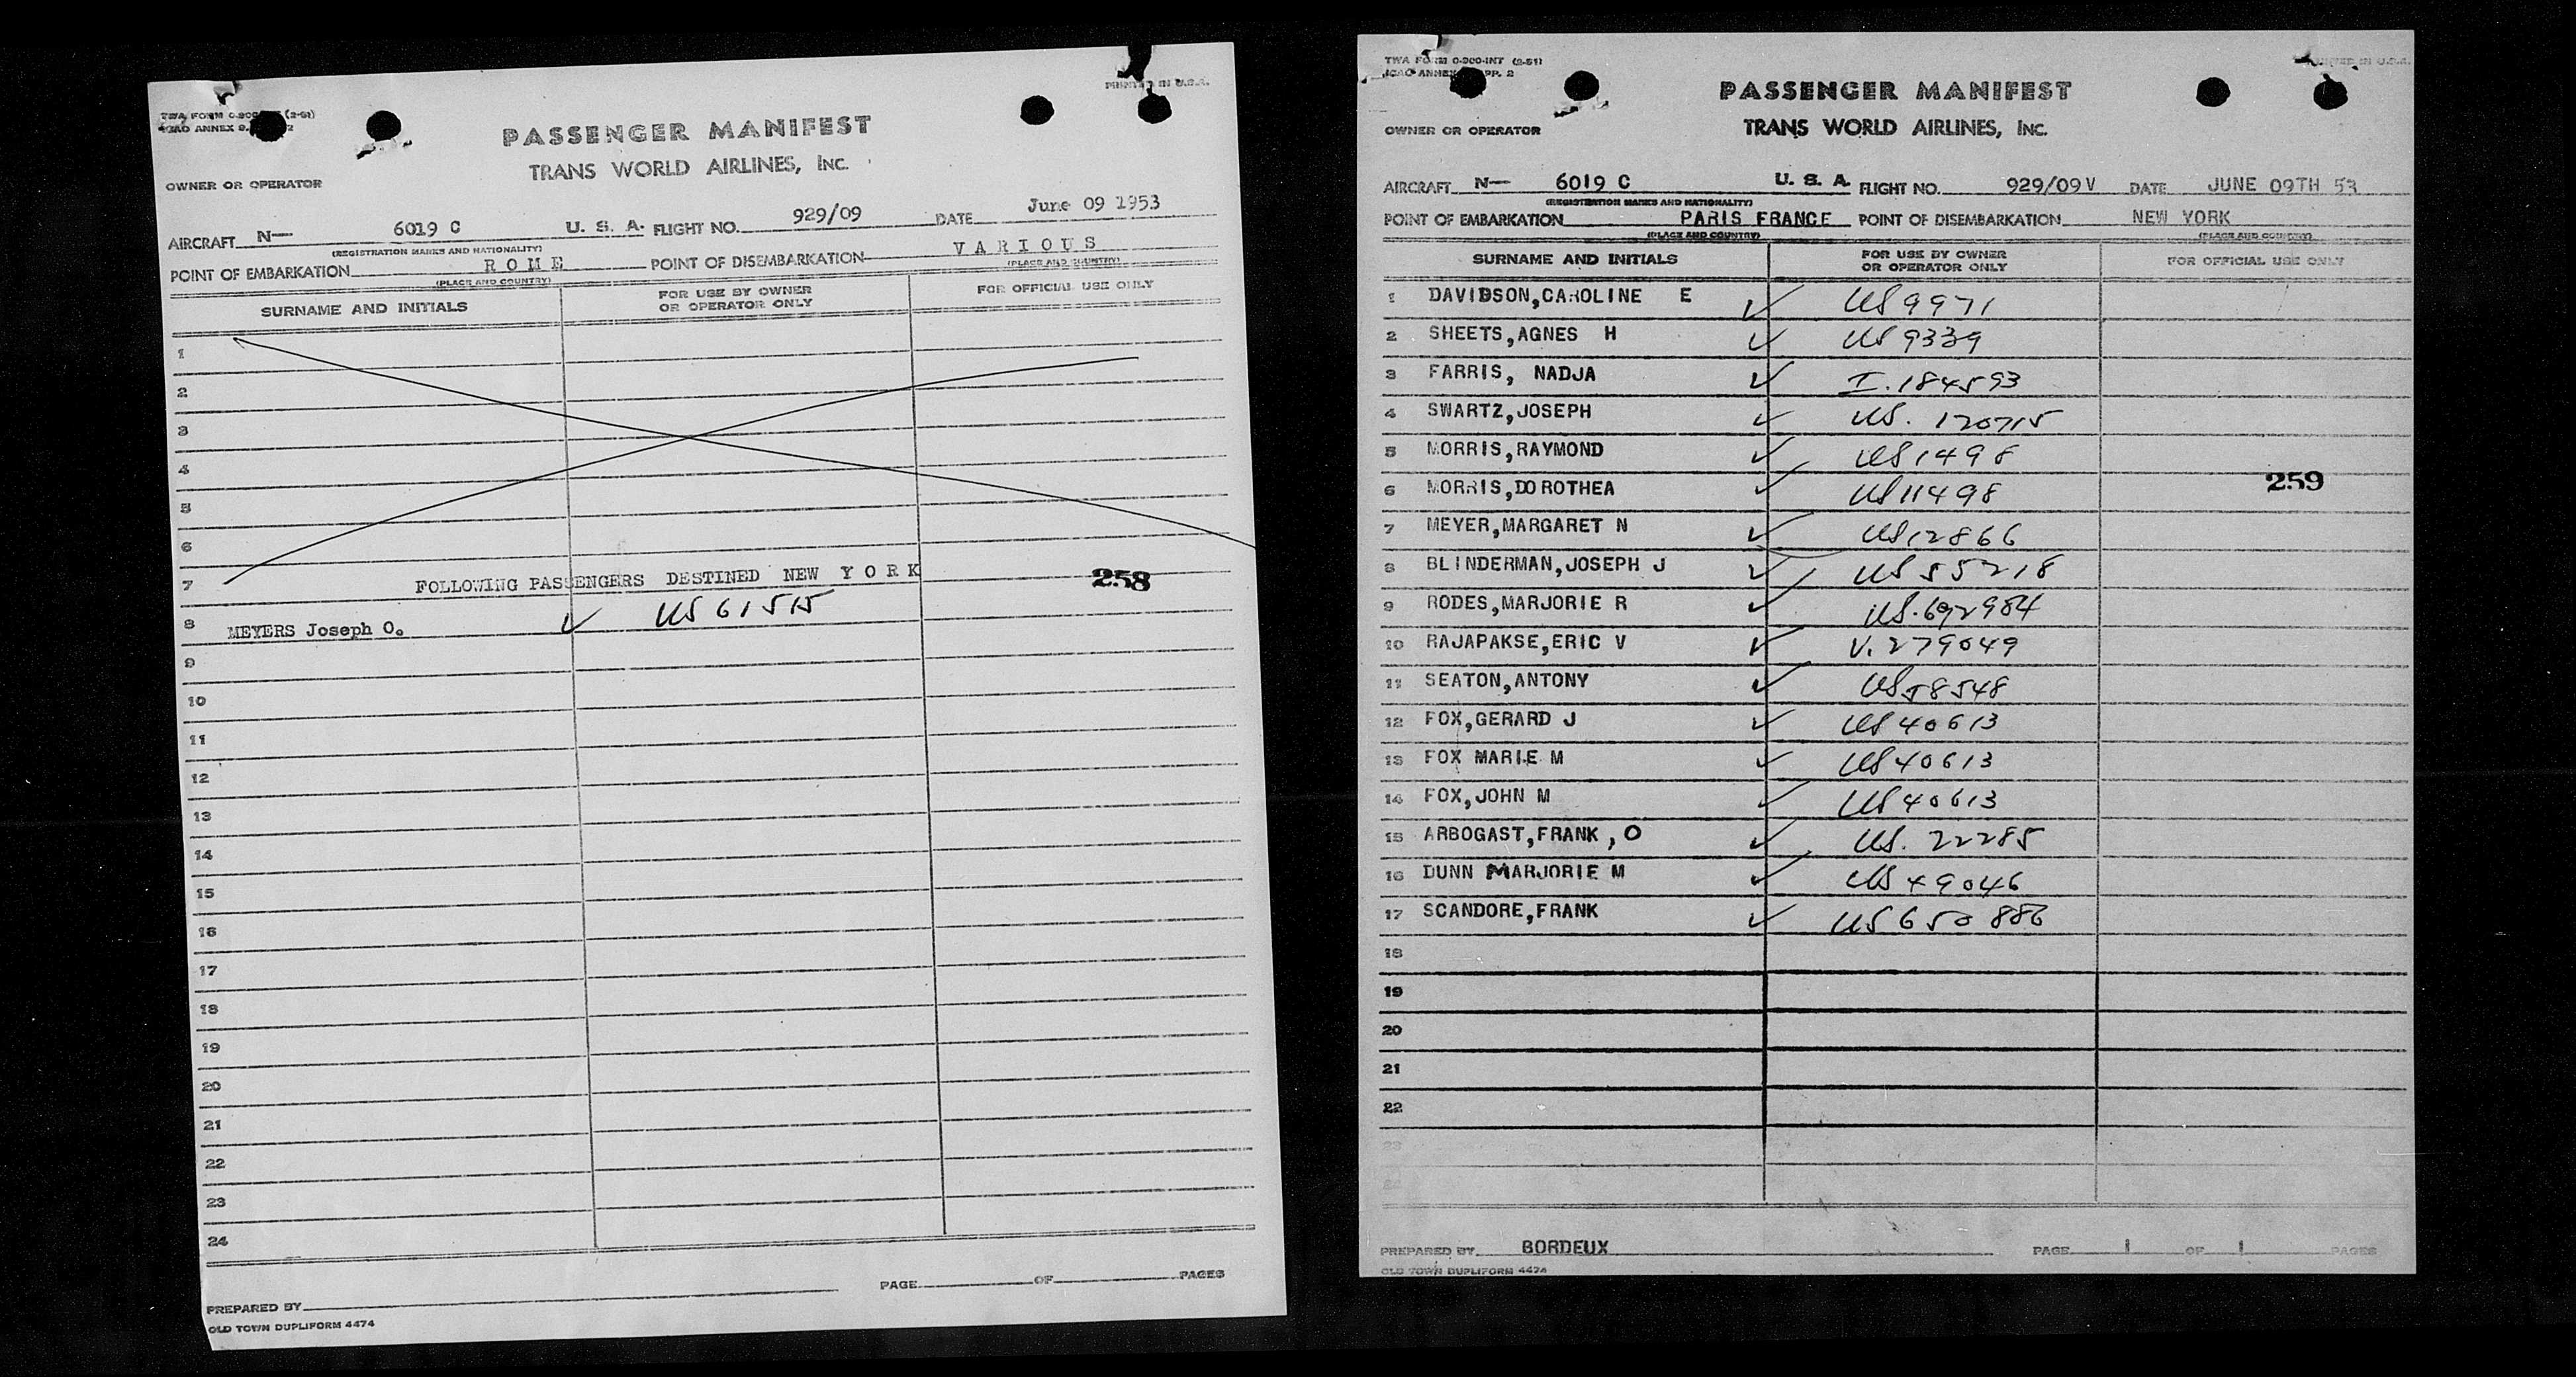 TWA FORM 0-300 (2-51)
ICAO ANNEX 9. 2
PRINTED IN U.S.A.
PASSENGER MANIFEST
TRANS WORLD AIRLINES, INC.
OWNER OR OPERATOR
AIRCRAFT N— 6019 C U. S. A. FLIGHT NO. 929/09 DATE June 09 1953
(REGISTRATION MARKS AND NATIONALITY)
POINT OF EMBARKATION R O M E POINT OF DISEMBARKATION V A R I O U S
(PLACE AND COUNTRY) (PLACE AND COUNTRY)
SURNAME AND INITIALS FOR USE BY OWNER OR OPERATOR ONLY FOR OFFICIAL USE ONLY
1
2
3
4
5
6
7 FOLLOWING PASSENGERS DESTINED NEW Y O R K 258
8 MEYERS Joseph O. ✓ US 61515
9
10
11
12
13
14
15
16
17
18
19
20
21
22
23
24
PAGE OF PAGES
PREPARED BY
OLD TOWN DUPLIFORM 4474
TWA FORM 0-300-INT (2-51)
ICAO ANNEX PP. 2
PRINTED IN U.S.A.
PASSENGER MANIFEST
OWNER OR OPERATOR TRANS WORLD AIRLINES, INC.
AIRCRAFT N— 6019 C U. S. A. FLIGHT NO. 929/09V DATE JUNE 09TH 53
(REGISTRATION MARKS AND NATIONALITY)
POINT OF EMBARKATION PARIS FRANCE POINT OF DISEMBARKATION NEW YORK
(PLACE AND COUNTRY) (PLACE AND COUNTRY)
SURNAME AND INITIALS FOR USE BY OWNER OR OPERATOR ONLY FOR OFFICIAL USE ONLY
1 DAVIDSON,CAROLINE E ✓ US 9971
2 SHEETS,AGNES H ✓ US 9339
3 FARRIS, NADJA ✓ I. 184593
4 SWARTZ,JOSEPH ✓ US. 120715
5 MORRIS,RAYMOND ✓ US 1498
6 MORRIS,DOROTHEA ✓ US 11498 259
7 MEYER,MARGARET N ✓ US 12866
8 BLINDERMAN,JOSEPH J ✓ US 55218
9 RODES,MARJORIE R ✓ US.692984
10 RAJAPAKSE,ERIC V ✓ V. 279049
11 SEATON,ANTONY ✓ US 58548
12 FOX,GERARD J ✓ US 40613
13 FOX MARIE M ✓ US 40613
14 FOX,JOHN M ✓ US 40613
15 ARBOGAST,FRANK ,O ✓ US. 22285
16 DUNN MARJORIE M ✓ US 49046
17 SCANDORE,FRANK ✓ US 650886
18
19
20
21
22
23
24
PREPARED BY BORDEUX PAGE 1 OF 1 PAGES
OLD TOWN DUPLIFORM 4474